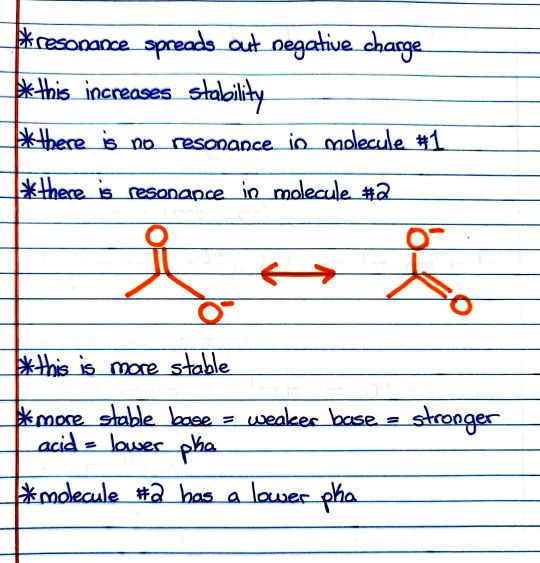 *resonance spreads out negative charge
*this increases stability
*there is no resonance in molecule #1
*there is resonance in molecule #2
O O⁻
O⁻ O
*this is more stable
*more stable base = weaker base = stronger
acid = lower pka
*molecule #2 has a lower pka